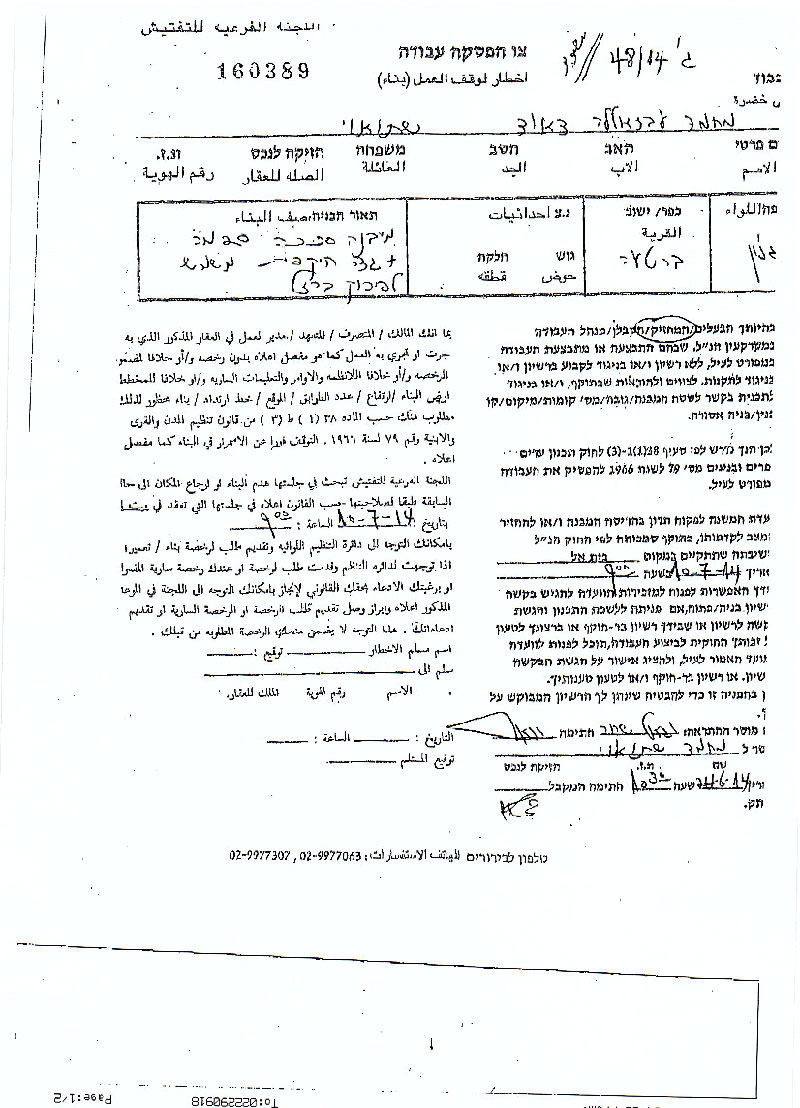 اللجنة الفرعية للتفتيش
צו הפסקה עבודה
اخطار لوقف العمل (بناء)
160389
ג' 48/14
מחמד עבדאללה דאוד שתואוי
ם פרטי האב הסב משפחה הזיקה לנכס ת.ז.
الاسم الاب الجد العائلة الصله للعقار رقم الهوية
כפר/ ישוב
القرية
ברטעה
נ.צ احداثيات
גוש חלקה
حوض قطعه
תאור הבניה/صف البناء
ג'נין
بما انك المالك / المتصرف / المتعهد / مدير لعمل في العقار المذكور الذي به
جرت او تجري به العمل كما هو مفصل اعلاه بدون رخصه و/أو خلافا
الرخصه و/أو خلافا للانظمه والاوامر والتعليمات الساريه و/او خلافا للمخطط
ارض البناء / ارتفاع / عدد الطوابق / الموقع / خط ارتداد / بناء محظور لذلك
مطلوب منك حسب الماده ٣٨ (١) ط (٣) من قانون تنظيم المدن والقرى
والابنية رقم ٧٩ لسنة ١٩٦٦ . التوقف فورا عن الاستمرار في البناء كما مفصل
اعلاه .
اللجنه الفرعيه للتفتيش تبحث في جلستها هدم البناء او ارجاع المكان الى
السابقة طبقا لصلاحيتها حسب القانون اعلاه في جلستها التي تعقد في
بتاريخ : 10-7-14 الساعة : 9:00
بامكانك التوجه الى دائرة التنظيم اللوائيه وتقديم طلب لرخصة بناء /
اذا توجهت لدائره التنظيم وقدمت طلب لرخصة او عندك رخصة سارية
او برغبتك الادعاء بحقك القانوني لإنجاز بامكانك التوجه الى اللجنة في
المذكور اعلاه وابراز وصل تقديم طلب الرخصة او الرخصة السارية او تقديم
ادعاءاتك . هذا التوجه لا يضمن منحك الرخصة المطلوبه من قبلك .
اسم مسلم الاخطار توقيع :
سلم الى
الاسم رقم الهوية المالك للعقار
التاريخ : الساعة :
توقيع المستلم
בהיותך הבעלים/המחזיק/הקבלן/מנהל העבודה
במקרקעין הנ"ל, שבהם התבצעה או מתבצעת עבודה
כמפורט לעיל, ללא רשיון ו/או בניגוד לקבוע ברשיון ו/או
בניגוד לתקנות, לצווים ולהוראות שבתוקף, ו/או בניגוד
לתכנית בקשר לשטח המבנה/גובה/מס' קומות/מיקום/קו
בנין/בניה אסורה.
לכן הנך נדרש לפי סעיף 38(1)-(3) לחוק תכנון ערים
כפרים ובנינים מס' 79 לשנת 1966 להפסיק את העבודה
כמפורט לעיל.
ועדת המשנה לפקוח תדון בהריסת המבנה ו/או להחזיר
המצב לקדמותו, בתוקף סמכותה לפי החוק הנ"ל
בישיבתה שתתקיים במקום בית אל
תאריך 10-7-14 בשעה 9:00
שיון. או רשיון בר-תוקף ו/או לטעון טענותיך.
ן בהפניה זו כדי להבטיח שינתן לך הרשיון המבוקש על
מוסר ההתראה: חתימה
מחמד שתואוי
שם ת.ז. הזיקה לנכס
24-6-14 שעה 10:30 חתימת המקבל
טלפון לבירורים الهتف الاستفسارات: 02-9977307, 02-9977063
To:022290918
Page:1/2